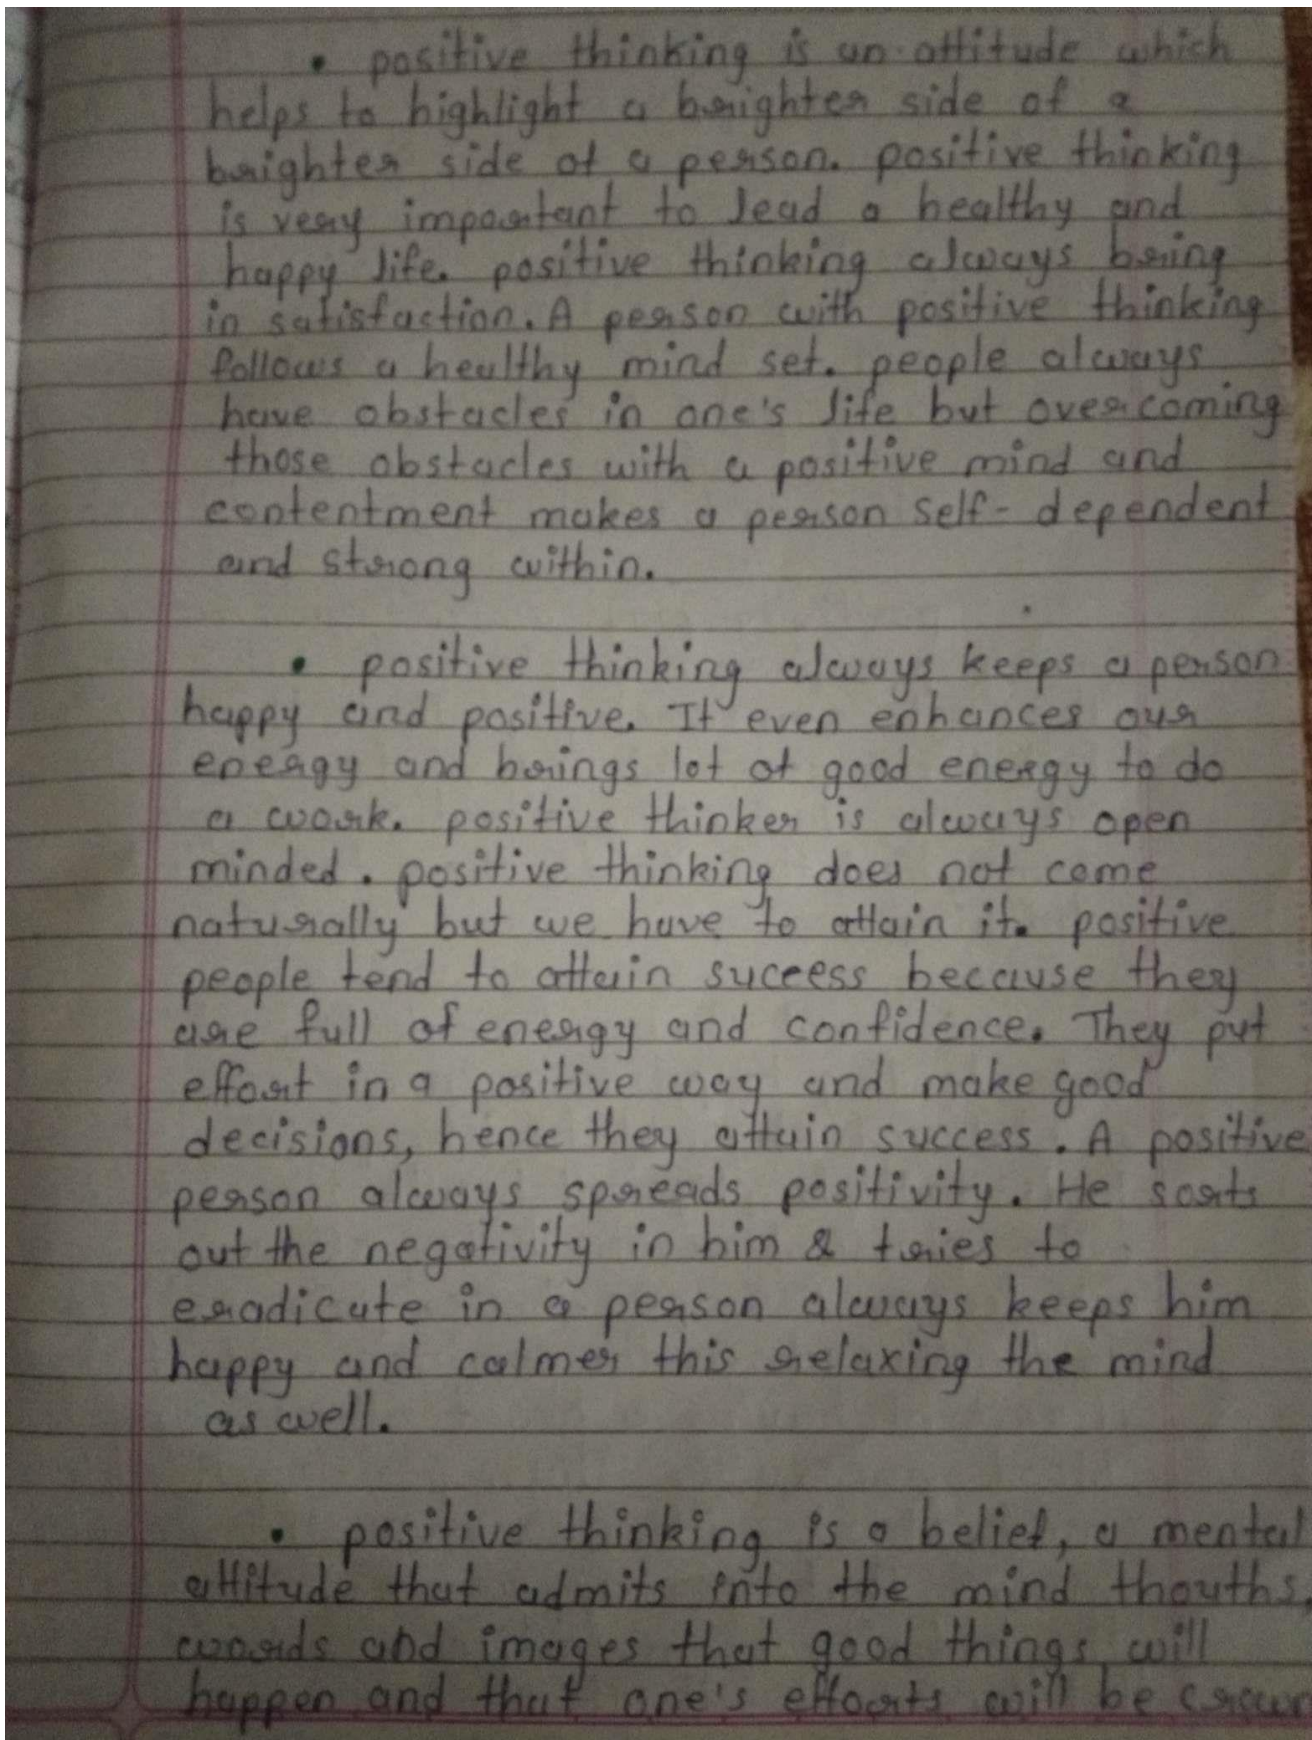 • positive thinking is an attitude which
helps to highlight a brighter side of a
brighter side of a person. positive thinking
is very important to lead a healthy and
happy life. positive thinking always bring
in satisfaction. A person with positive thinking
follows a healthy mind set. people always
have obstacles in one's life but overcoming
those obstacles with a positive mind and
contentment makes a person self-dependent
and strong within.
• positive thinking always keeps a person
happy and positive. It even enhances our
energy and brings lot of good energy to do
a work. positive thinker is always open
minded. positive thinking does not come
naturally but we have to attain it. positive
people tend to attain success because they
are full of energy and confidence. They put
effort in a positive way and make good
decisions, hence they attain success. A positive
person always spreads positivity. He sorts
out the negativity in him & tries to
eradicate in a person always keeps him
happy and calmer this relaxing the mind
as well.
• positive thinking is a belief, a mental
attitude that admits into the mind thouths,
words and images that good things will
happen and that one's efforts will be